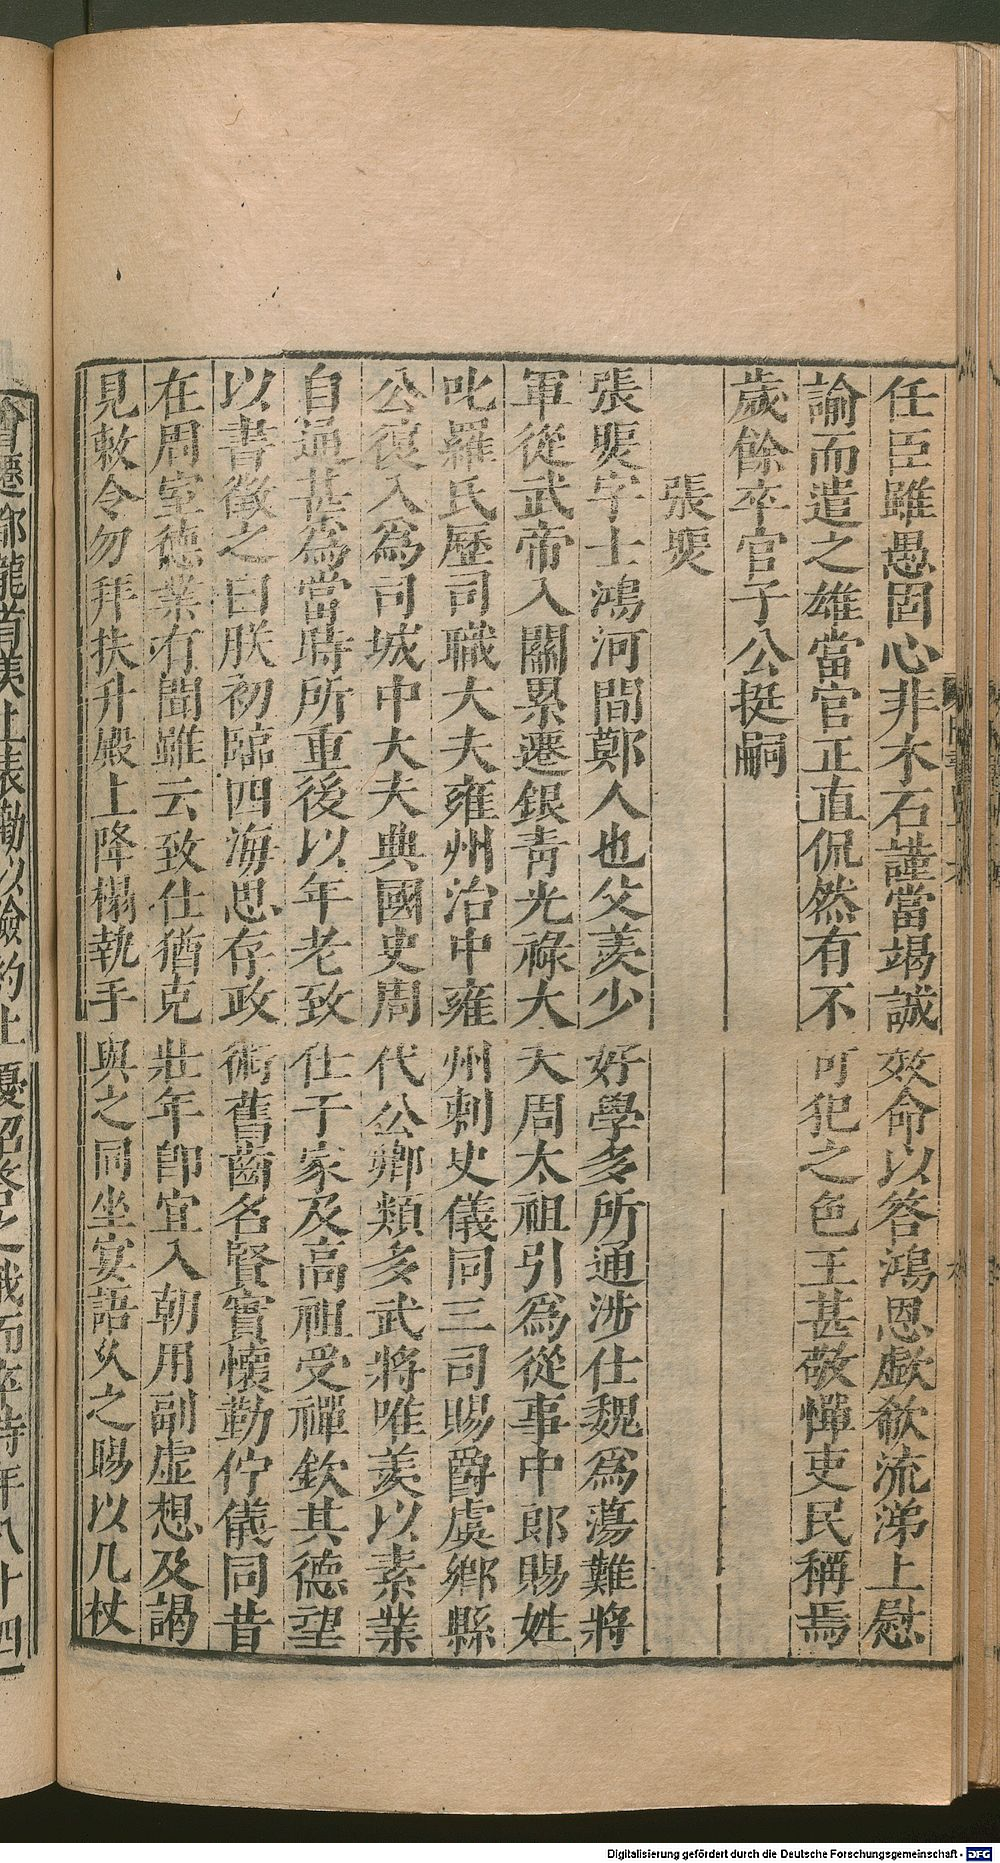 任臣雖愚固心非木石謹當竭誠效命以答鴻恩歔欷流涕上慰
諭而遣之雄當官正直侃然有不可犯之色王甚敬憚吏民稱焉
歲餘卒官子公挺嗣
張煚
張煚字士鴻河間鄭人也父羨少好學多所通涉仕魏爲蕩難將
軍從武帝入關累遷銀青光祿大夫周太祖引爲從事中郎賜姓
叱羅氏歷司職大夫雍州治中雍州刺史儀同三司賜爵虞鄉縣
公復入爲司城中大夫典國史周代公卿類多武將唯羨以素業
自通甚爲當時所重後以年老致仕于家及高祖受禪欽其德望
以書徵之曰朕初臨四海思存政術舊齒名賢實懷勤佇儀同昔
在周室德業有聞雖云致仕猶克壯年卽宜入朝用副虛想及謁
見敕令勿拜扶升殿上降榻執手與之同坐宴語久之賜以几杖
會遷都龍首羨上表勸以儉約上優詔答之俄而卒時年八十四
Digitalisierung gefördert durch die Deutsche Forschungsgemeinschaft - DFG